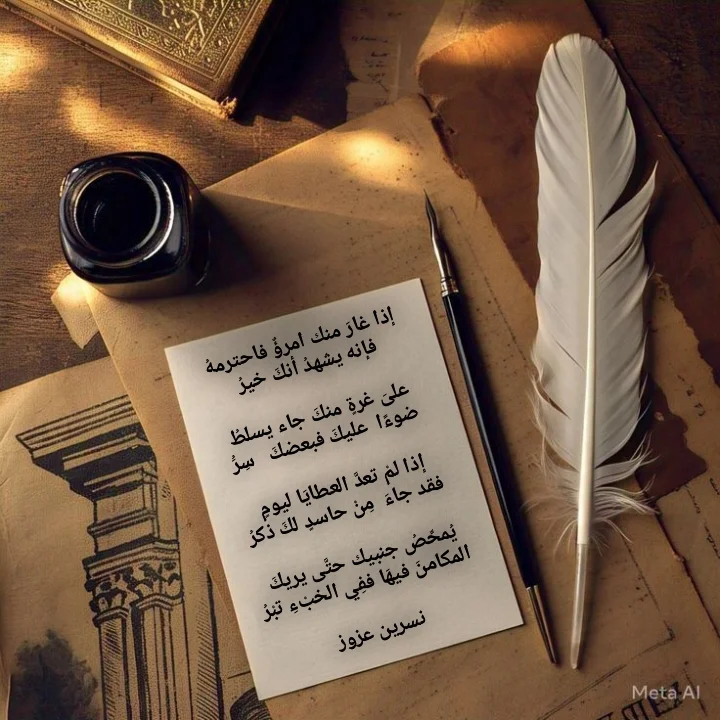 إذا غارَ منك امرؤٌ فاحترمهُ
فإنه يشهدُ أنكَ خيرُ
علىَ غرةِ منكَ جاء يسلطُ
ضوءًا عليكَ فبعضكَ سِرُّ
إذا لمْ تعدَّ العطايَا ليومِ
فقد جاءَ مِنْ حاسدِ لكَ ذكرُ
يُمحّصُ جنبيك حتَّى يريكَ
المكامنَ فيهَا ففِي الخبْءِ تبْرُ
نسرين عزوز
Meta AI